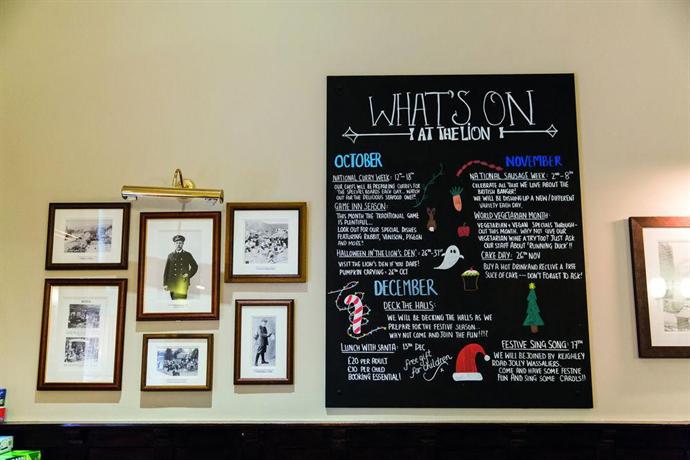 WHAT'S ON
AT THE LION
OCTOBER
NATIONAL CURRY WEEK: 12TH-18TH
OUR CHEFS WILL BE PREPARING CURRIES FOR
THE SPECIALS BOARDS EACH DAY... WATCH
OUT FOR THE DELICIOUS SEAFOOD ONE!!
GAME INN SEASON:
THIS MONTH THE TRADITIONAL GAME
IS PLENTIFUL...
LOOK OUT FOR OUR SPECIAL DISHES
FEATURING RABBIT, VENISON, PIGEON
AND MORE!!
HALLOWEEN IN THE LION'S 'DEN': 26TH-31ST
VISIT THE LION'S DEN IF YOU DARE!
PUMPKIN CARVING: 26TH OCT
NOVEMBER
NATIONAL SAUSAGE WEEK: 2ND-8TH
CELEBRATE ALL THAT WE LOVE ABOUT THE
BRITISH BANGER!
WE'LL BE DISHING UP A NEW/DIFFERENT
VARIETY EACH DAY.
WORLD VEGETARIAN MONTH:
VEGETARIAN + VEGAN SPECIALS THROUGH-
OUT THIS MONTH. WHY NOT GIVE OUR
VEGETARIAN WINE A TRY TOO? JUST ASK
OUR STAFF ABOUT "RUNNING DUCK"!!
CAKE DAY: 26TH NOV
BUY A HOT DRINK AND RECEIVE A FREE
SLICE OF CAKE --- DON'T FORGET TO ASK!
DECEMBER
DECK THE HALLS:
WE WILL BE DECKING THE HALLS AS WE
PREPARE FOR THE FESTIVE SEASON...
WHY NOT COME AND JOIN THE FUN!!!?
LUNCH WITH SANTA: 13TH DEC
£20 PER ADULT
£10 PER CHILD
BOOKING ESSENTIAL!
free gift
for children
FESTIVE SING SONG: 17TH
WE WILL BE JOINED BY KEIGHLEY
ROAD JOLLY WASSALIERS
COME AND HAVE SOME FESTIVE
FUN AND SING SOME CAROLS!!